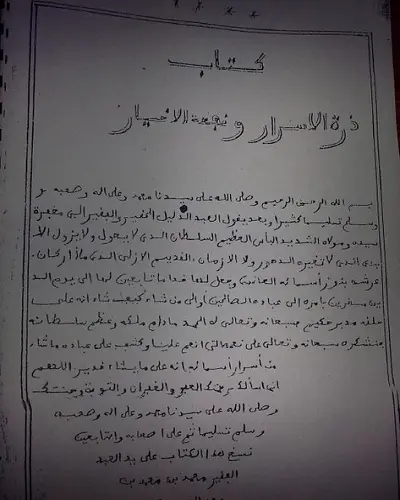 * * *
كتاب
درة الاسرار ونجعة الاخيار
بسم الله الرحمن الرحيم وصلى الله على سيدنا محمد وعلى اله وصحبه
وسلم تسليما كثيرا وبعد يقول العبد الذليل الحقير والفقير الى مغفرة
سيده ومولاه الشديد الباس العظيم السلطان الذى لا يحول ولا يزول الا
الذى لا تغيره الدهور ولا الازمان القديم الازلى الذى ملأ اركان
عرشه بنور أسمائه وجعل لها خداما تابعين لها الى يوم الد
ين مسخرين بامره الى عباده الصالحين أوالى من شاء كيف شاء انه على
خلقه مدبر حكيم سبحانه وتعالى له الحمد مادام ملكه وعظيم سلطانه
نشكره سبحانه وتعالى على نعمه التى انعم علينا وكشف على عباده ماشاء
من أسرار أسمائه انه على مايشاء قدير اللهم
انى اسألك العفو والغفران والتوبة
وصلى الله على سيدنا محمد وعلى اله وصحبه
وسلم تسليما اصحابه والتابعين
نسخ هذا الكتاب على يد العبد
الفقير محمد بن محمد بن